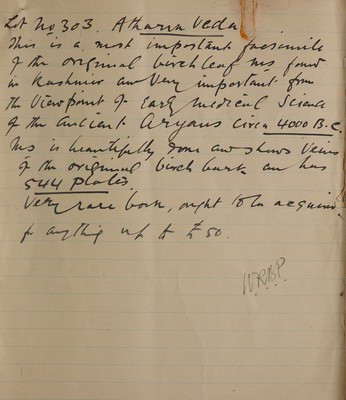 Lot No 303. Atharva Veda
This is a most important facsimile
of the original birch leaf ms found
in Kashmir and very important from
the viewpoint of Early Medical Science
of the Ancient Aryans circa 4000 B.C.
Ms is beautifully done and shows veins
of the original birch bark and has
544 plates.
Very rare book, ought to be acquired
for anything up to £50.
W.R.B.P.